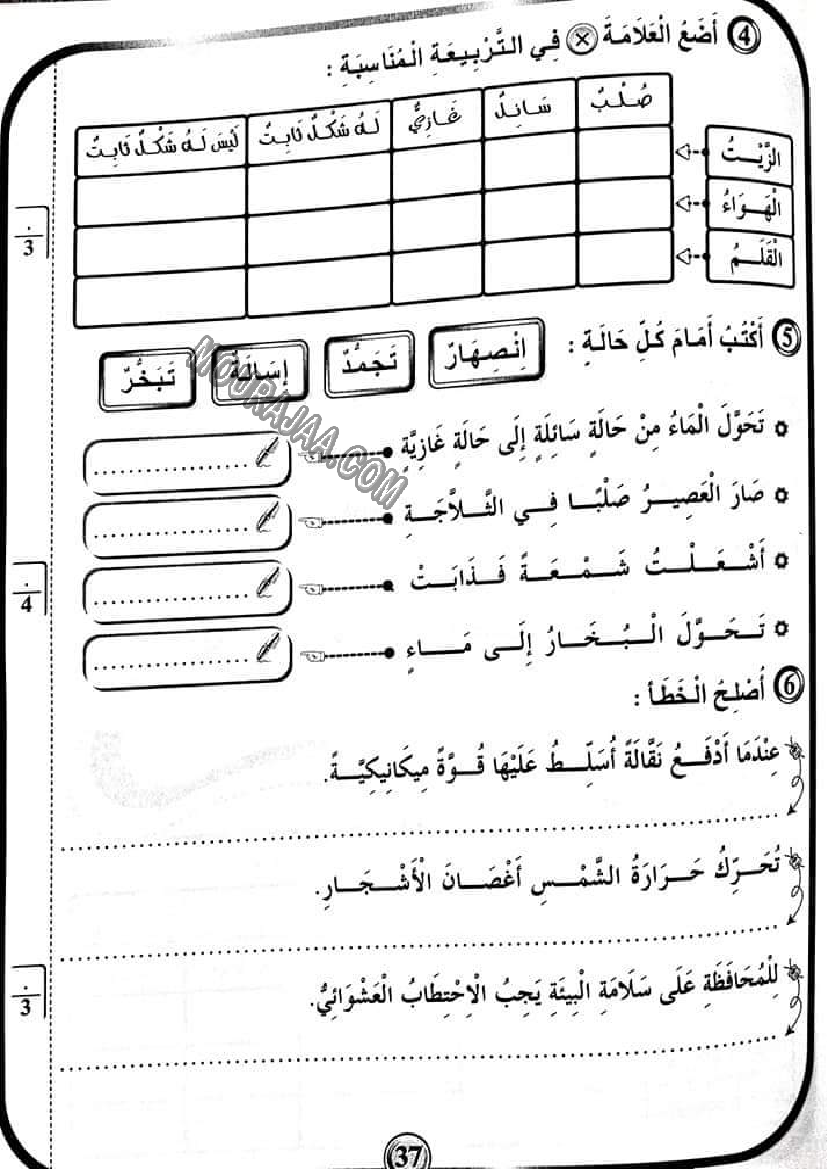 4 أَضَعُ الْعَلَامَةَ × فِي التَّرْبِيعَةِ الْمُنَاسِبَةِ :
صُلْبٌ سَائِلٌ غَازِيٌّ لَهُ شَكْلٌ ثَابِتٌ لَيْسَ لَهُ شَكْلٌ ثَابِتٌ
الزَّيْــتُ
الْهَــوَاءُ
الْقَلَــمُ
3
5 أَكْتُبُ أَمَامَ كُلِّ حَالَةٍ : اِنْصِهَارٌ تَجَمُّدٌ إِسَالَةٌ تَبَخُّرٌ
MOURAJAA.COM
تَحَوَّلَ الْمَاءُ مِنْ حَالَةٍ سَائِلَةٍ إِلَى حَالَةٍ غَازِيَّةٍ ....................
صَارَ الْعَصِيــرُ صَلْبًــا فِــي الثَّــلَّاجَــةِ ....................
أَشْــعَــلْــتُ شَــمْــعَــةً فَــذَابَــتْ ....................
4
تَــحَــوَّلَ الْــبُــخَــارُ إِلَــى مَــــاءٍ ....................
6 أُصْلِحُ الْخَطَأَ :
عِنْدَمَا أَدْفَــعُ نَقَّالَةً أُسَلِّــطُ عَلَيْهَا قُــوَّةً مِيكَانِيكِيَّــةً.
تُحَــرِّكُ حَــرَارَةُ الشَّمْــسِ أَغْصَــانَ الْأَشْــجَــارِ.
لِلْمُحَافَظَةِ عَلَى سَلَامَةِ الْبِيئَةِ يَجِبُ الْاِحْتِطَابُ الْعَشْوَائِيُّ.
3
37